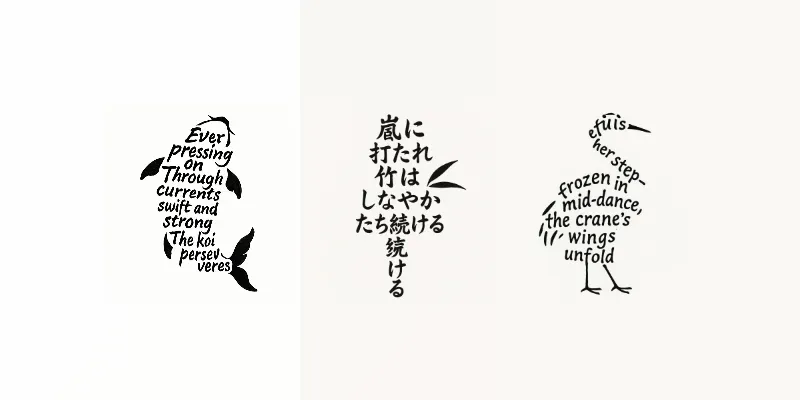 Ever
pressing
on
Through
currents
swift and
strong
The koi
persev
veres
嵐に
打たれ
竹は
しなやか
たち続ける
続
け
る
efuis
her step–
frozen in
mid-dance,
the crane's
wings
unfold